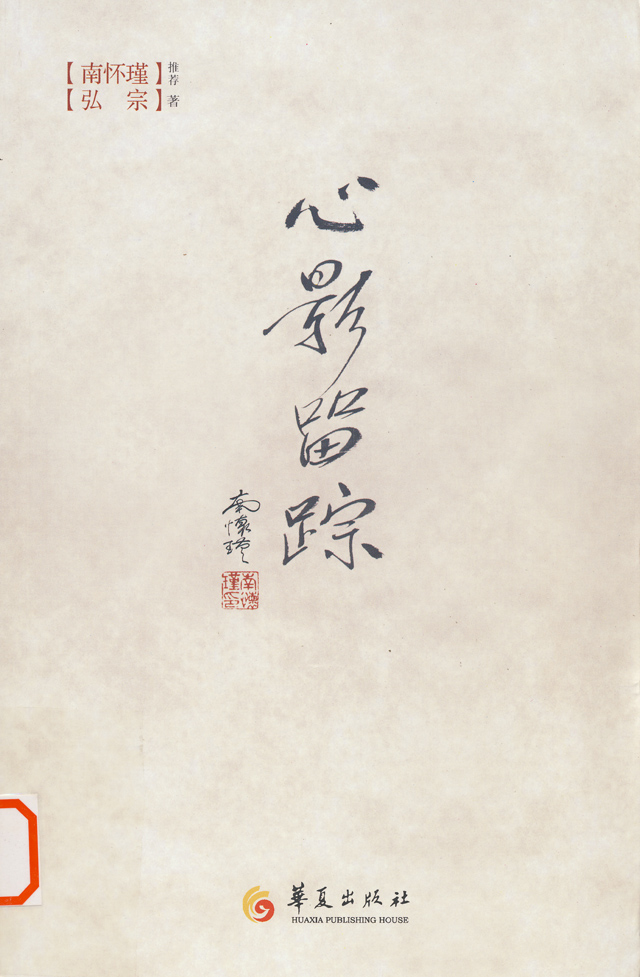 【南怀瑾】推荐
【弘 宗】著
心影留踪
南懷瑾
南懷瑾印
華夏出版社
HUAXIA PUBLISHING HOUSE